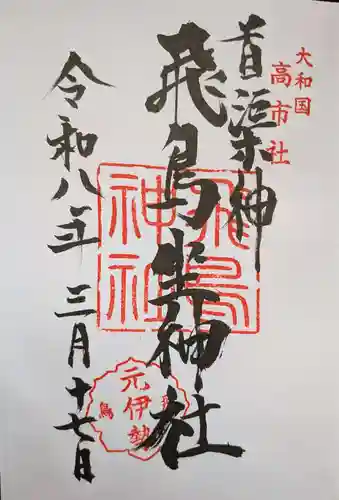 大和国
高市社
飛鳥坐神社
令和八年 三月十七日
飛鳥
神社
元伊勢